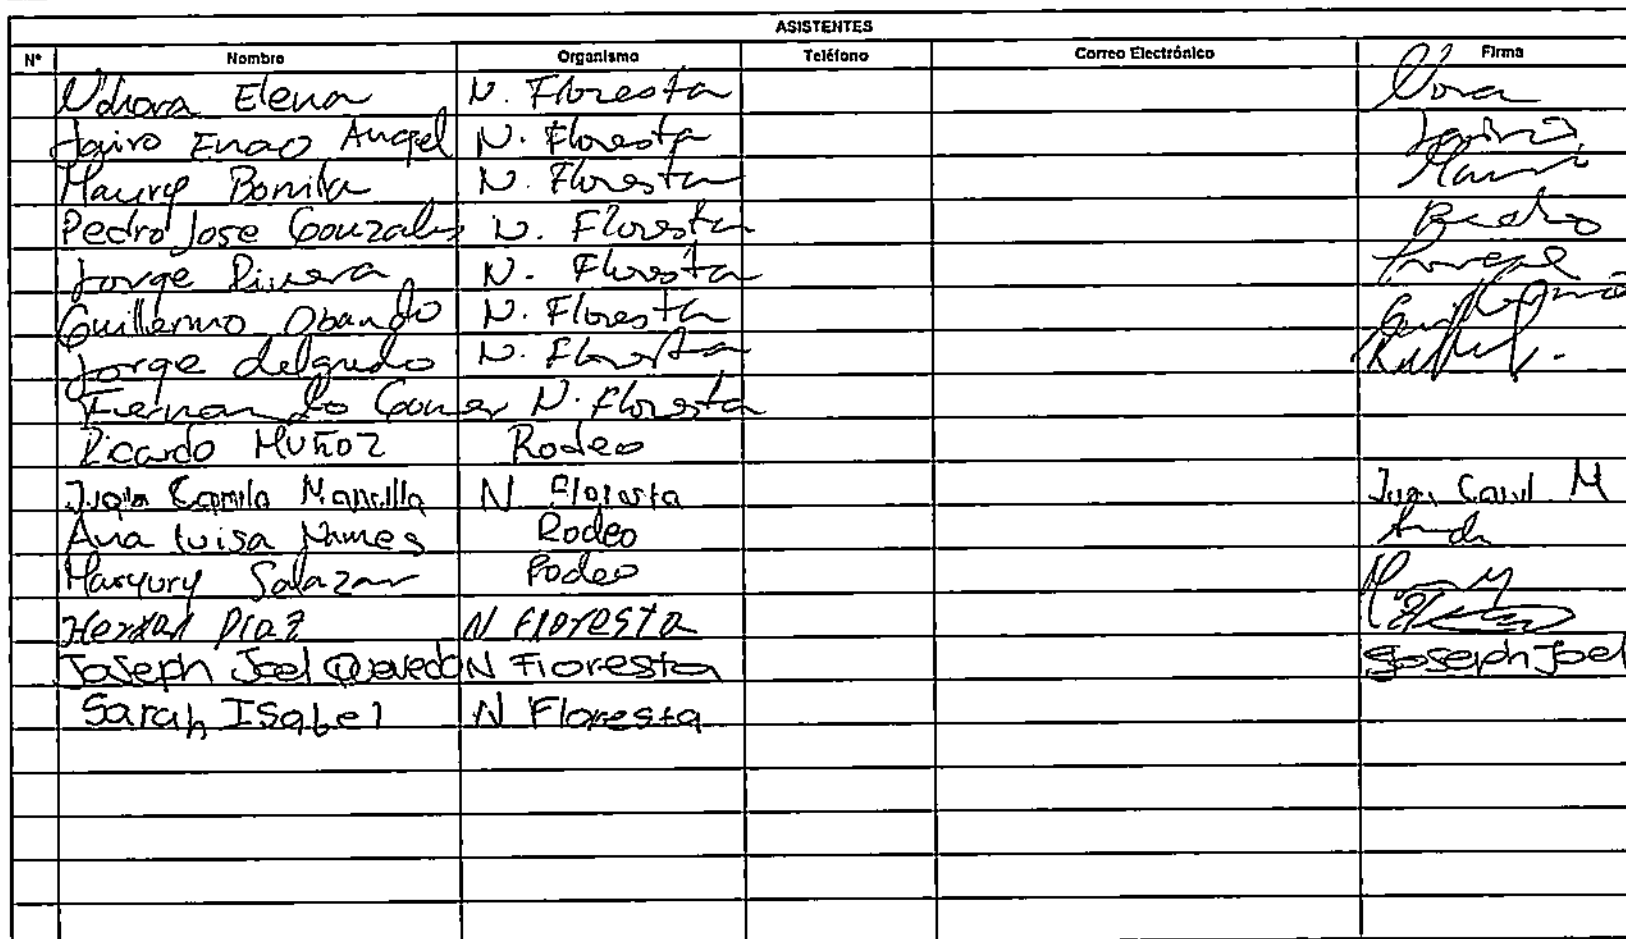 ASISTENTES
Nº Nombre Organismo Teléfono Correo Electrónico Firma
Elena N. Floresta
Jairo Enao Angel N. Floresta Jairo
Maury Bonilla N. Floresta
Pedro Jose Gonzales N. Floresta Pedro
Jorge Rivera N. Floresta
Guillermo Obando N. Floresta
Jorge delgado N. Floresta
Fernando Gomez N. Floresta
Ricardo MUÑOZ Rodeo
Juan Camilo Mancilla N Floresta Juan Camil M
Ana Luisa Nunes Rodeo
Maryury Salazar Rodeo
Hernan Diaz N Floresta
Joseph Joel Quevedo N Floresta Joseph Joel
Sarah Isabel N Floresta